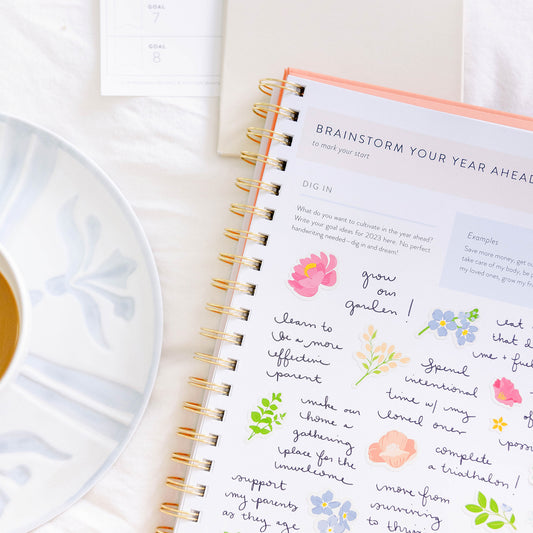 GOAL
7
GOAL
8
BRAINSTORM YOUR YEAR AHEAD
to mark your start
DIG IN
What do you want to cultivate in the year ahead?
Write your goal ideas for 2023 here. No perfect
handwriting needed—dig in and dream!
Examples
Save more money, get
take care of my body, be
my loved ones, grow my
grow
our
garden!
learn to
be a more
effective
parent
eat
that
me + fuel
Spend
intentional
time w/ my
loved ones
make our
home a
gathering
place for the
unwelcome
complete
a triathalon!
support
my parents
as they age
move from
surviving
to thriving